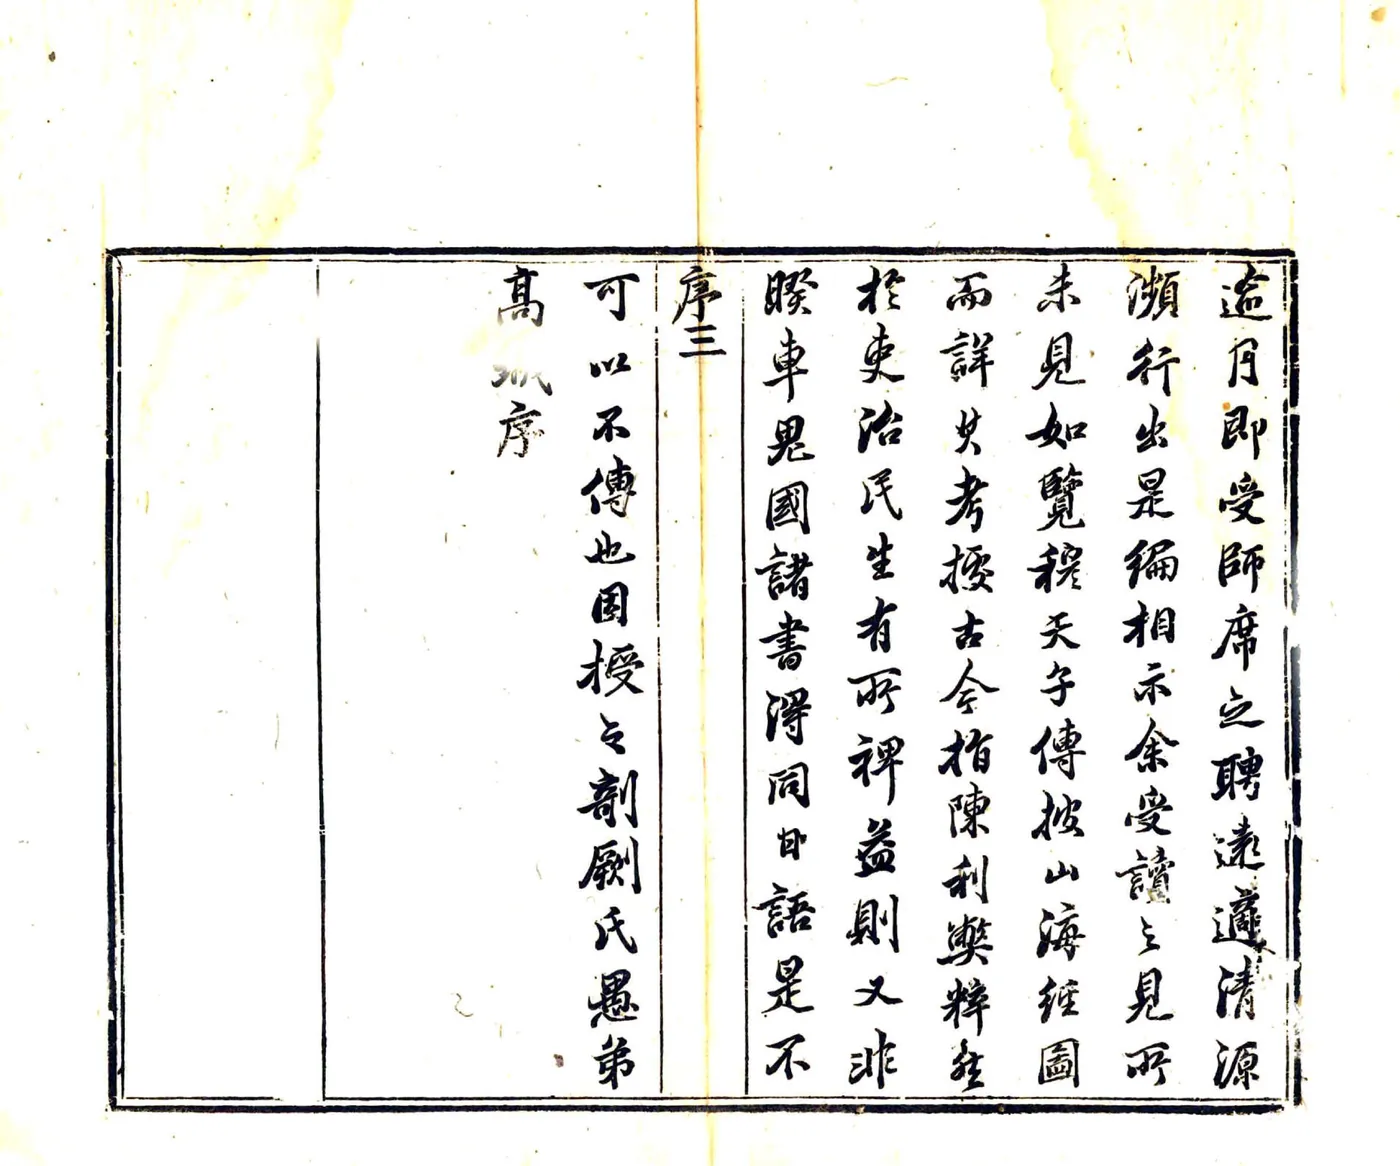 逾月即受師席之聘遠適清源
瀕行出是編相示余受讀之見所
未見如覽穆天子傳披山海經圖
而詳其考據古今指陳利弊粹然
於吏治民生有所裨益則又非
睽車鬼國諸書得同日語是不
序三
可以不傳也因授之剞劂氏愚弟
高序